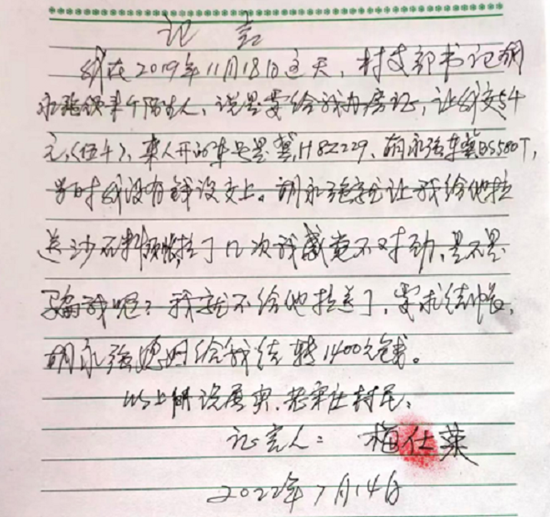 记言
我在2019年11月18日这天,村支部书记胡
永强领来个陌生人,说是要给我办房证,让我交5千
元,(伍千),来人开的车号是冀H8Z229、胡永强车冀B5580T,
当时我没有钱没交上。胡永强就让我给他拉
送沙石料顶账,拉了几次我感觉不对劲,是不是
骗我呢?我就不给他拉送了,要求结账,
胡永强媳妇给我结转1400元钱。
以上所说属实,村民。
证言人:梅仕荣
2022年7月14日